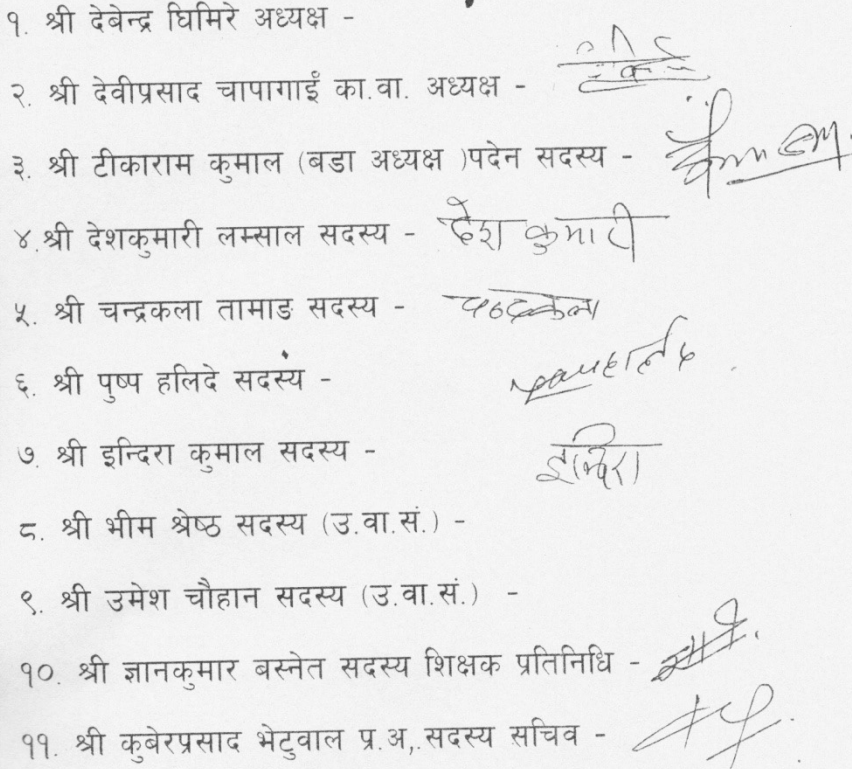 १. श्री देबेन्द्र घिमिरे अध्यक्ष -
२. श्री देवीप्रसाद चापागाईं का.वा. अध्यक्ष -
३. श्री टीकाराम कुमाल (बडा अध्यक्ष )पदेन सदस्य -
४.श्री देशकुमारी लम्साल सदस्य - देश कुमारी
५. श्री चन्द्रकला तामाङ सदस्य - चन्द्रकला
६. श्री पुष्प हलिदे सदस्यं -
७. श्री इन्दिरा कुमाल सदस्य - इन्दिरा
८. श्री भीम श्रेष्ठ सदस्य (उ.वा.सं.) -
९. श्री उमेश चौहान सदस्य (उ.वा.सं.) -
१०. श्री ज्ञानकुमार बस्नेत सदस्य शिक्षक प्रतिनिधि -
११. श्री कुबेरप्रसाद भेटुवाल प्र.अ,.सदस्य सचिव -